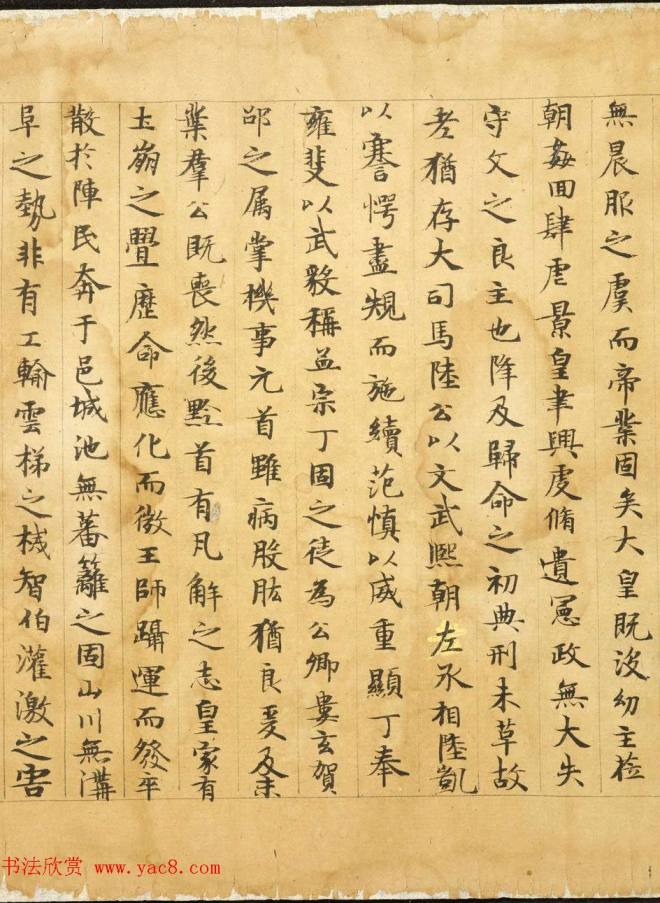 無晨服之虞而帝業固矣大皇既沒幼主莅
朝姦回肆虐景皇聿興虔脩遺憲政無大失
守文之良主也降及歸命之初典刑未草故
老猶存大司馬陸公以文武熙朝左丞相陸凱
以謇愕盡規而施績范慎以威重顯丁奉
雍斐以武毅稱孟宗丁固之徒為公卿婁玄賀
邵之属掌機事元首雖病股肱猶良爰及末
葉羣公既喪然後黔首有凡解之志皇家有
土崩之舋歷命應化而微王師躡運而發卒
散於陣民奔于邑城池無蕃籬之固山川無溝
阜之勢非有工輸雲梯之械智伯灌激之害
书法欣赏 www.yac8.com